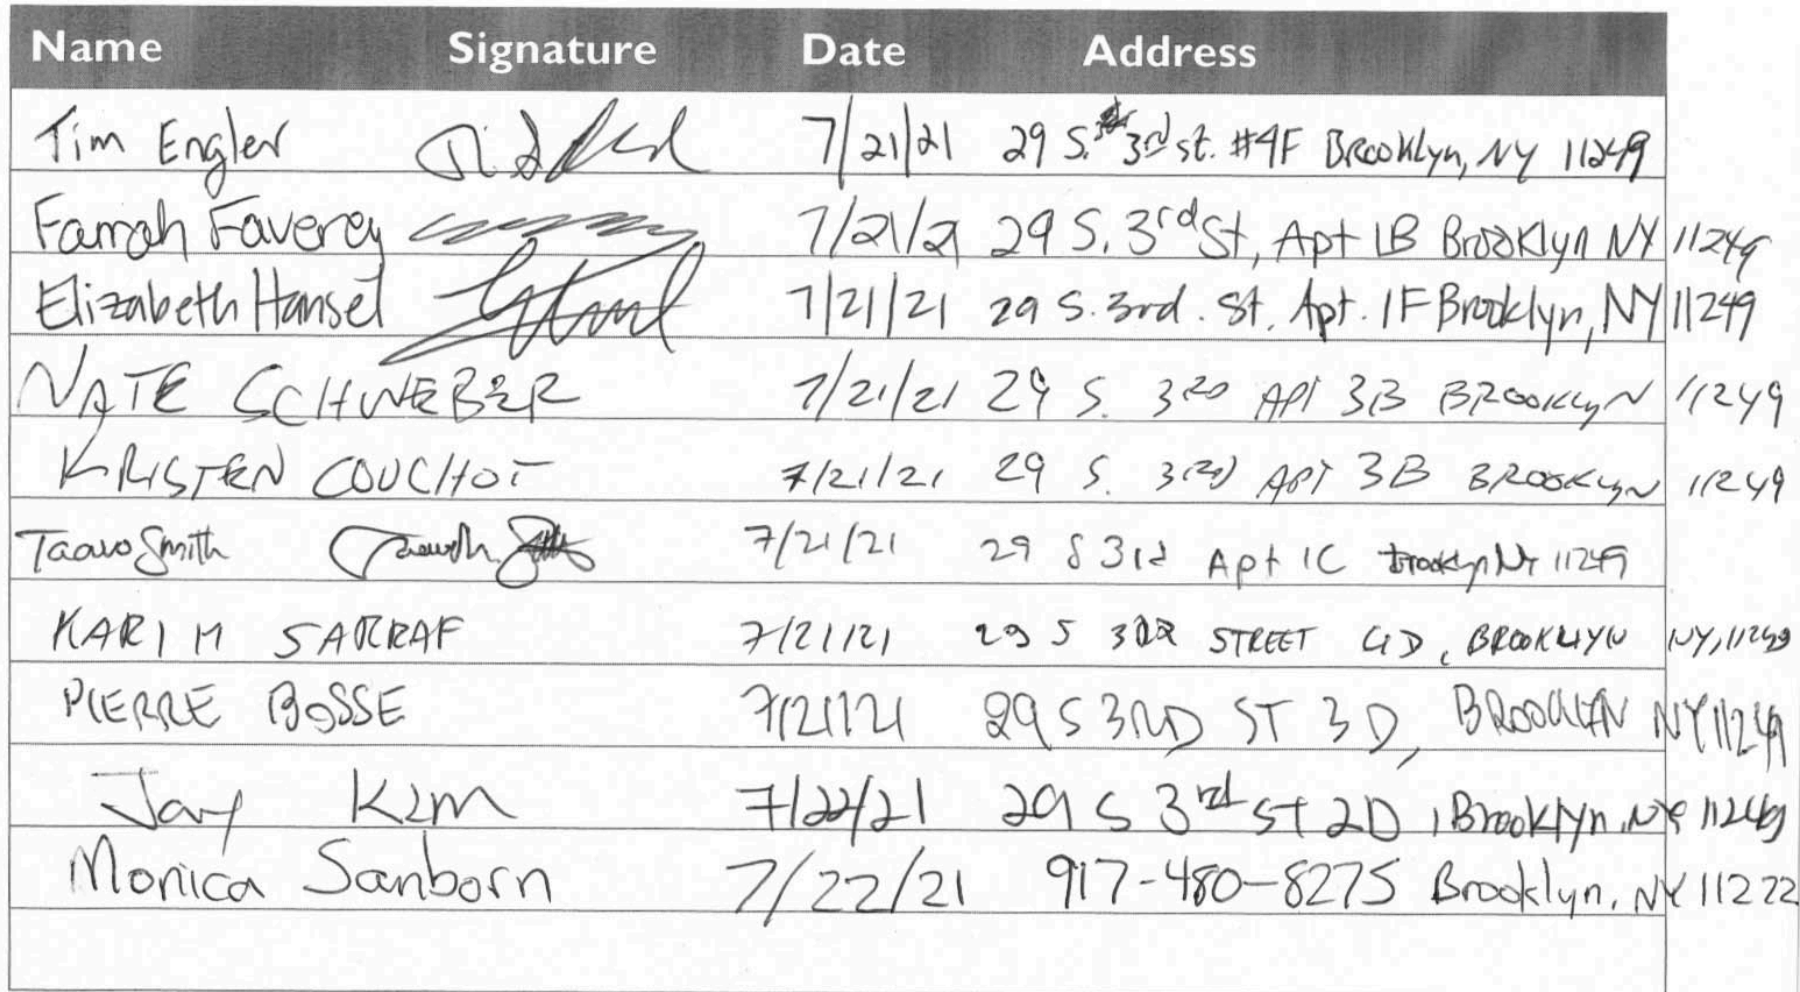 Name Signature Date Address
Tim Engler 7/21/21 29 S. 3rd st. #4F Brooklyn, NY 11249
Farrah Faverey 7/21/21 29 S. 3rd St, Apt 1B Brooklyn NY 11249
Elizabeth Hansel 7/21/21 29 S. 3rd. St. Apt. 1F Brooklyn, NY 11249
NATE SCHWEBER 7/21/21 29 S. 3RD APT 3B BROOKLYN 11249
KRISTEN COUCHOT 7/21/21 29 S. 3RD APT 3B BROOKLYN 11249
Smith 7/21/21 29 S 3rd Apt 1C Brooklyn NY 11249
KARIM SARRAF 7/21/21 29 S 3RD STREET 4D, BROOKLYN NY, 11249
PIERRE BOSSE 7/21/21 29 S 3RD ST 3D, BROOKLYN NY 11249
Jay Kim 7/22/21 29 S 3rd St 2D, Brooklyn, NY 11249
Monica Sanborn 7/22/21 917-480-8275 Brooklyn, NY 11222